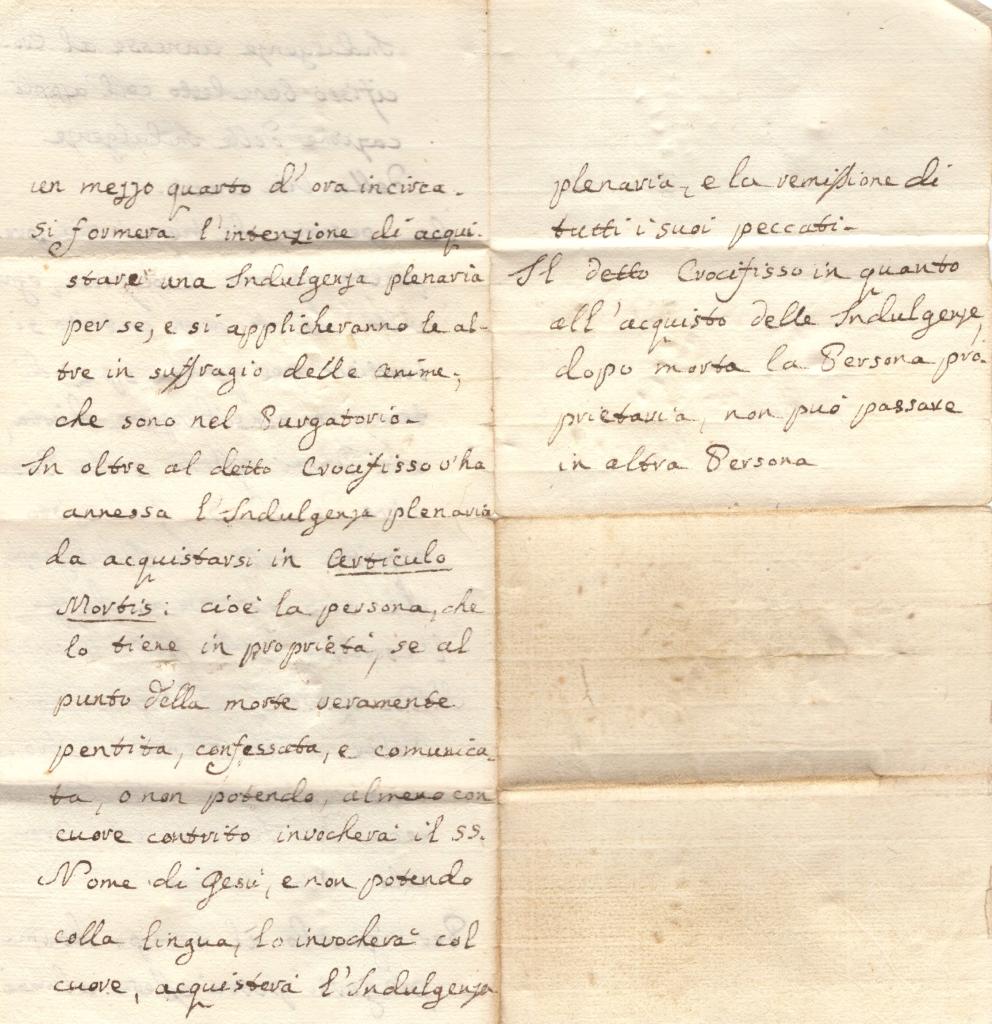 un mezzo quarto d'ora incirca.
Si formerà l'intenzione di acqui-
stare una Indulgenza plenaria
per se, e si applicheranno le al-
tre in suffragio delle anime,
che sono nel Purgatorio.
In oltre al detto Crocifisso v'ha
annessa l'Indulgenza plenaria
da acquistarsi in Articulo
Mortis: cioè la persona, che
lo tiene in proprietà, se al
punto della morte veramente
pentita, confessata, e comunica-
ta, o non potendo, almeno con
cuore contrito invocherà il SS.
Nome di Gesù, e non potendo
colla lingua, lo invocherà col
cuore, acquisterà l'Indulgenza
plenaria, e la remissione di
tutti i suoi peccati.
Il detto Crocifisso in quanto
all'acquisto delle Indulgenze,
dopo morta la Persona pro-
prietaria, non può passare
in altra Persona